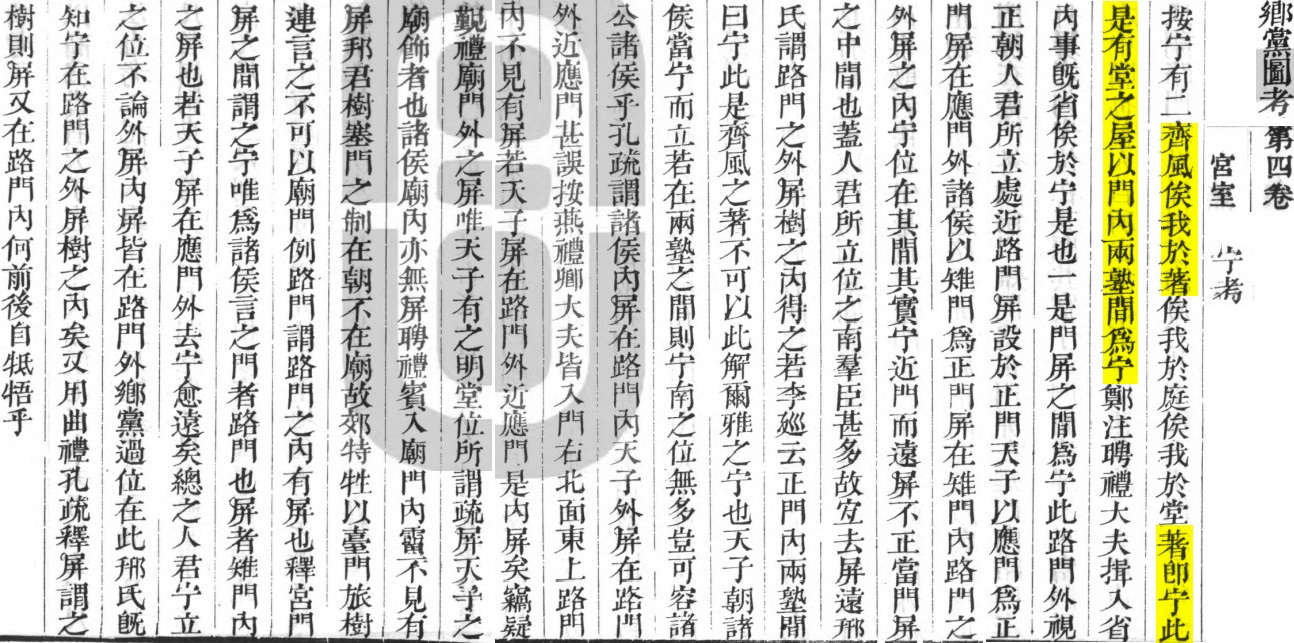 鄉黨圖考 第四卷
宮室 宁考
按宁有二齊風俟我於著俟我於庭俟我於堂著卽宁此
是有堂之屋以門內兩塾間爲宁鄭注聘禮大夫揖入省
內事旣省俟於宁是也一是門屏之間爲宁此路門外視
正朝人君所立處近路門屏設於正門天子以應門爲正
門屏在應門外諸侯以雉門爲正門屏在雉門內路門之
外屏之內宁位在其間其實宁近門而遠屏不正當門屏
之中間也蓋人君所立位之南羣臣甚多故宐去屏遠邢
氏謂路門之外屏樹之內得之若李廵云正門內兩塾間
曰宁此是齊風之著不可以此解爾雅之宁也天子朝諸
侯當宁而立若在兩塾之間則宁南之位無多豈可容諸
公諸侯乎孔疏謂諸侯內屏在路門內天子外屏在路門
外近應門甚誤按燕禮卿大夫皆入門右北面東上路門
內不見有屏若天子屏在路門外近應門是內屏矣竊疑
覲禮廟門外之屏唯天子有之明堂位所謂疏屏天子之
廟飾者也諸侯廟內亦無屏聘禮賓入廟門內霤不見有
屏邦君樹塞門之制在朝不在廟故郊特牲以臺門旅樹
連言之不可以廟門例路門謂路門之內有屏也釋宮門
屏之間謂之宁唯爲諸侯言之門者路門也屏者雉門內
之屏也若天子屏在應門外去宁愈遠矣總之人君宁立
之位不論外屏內屏皆在路門外鄉黨過位在此邢氏旣
知宁在路門之外屏樹之內矣又用曲禮孔疏釋屏謂之
樹則屏又在路門內何前後自牴牾乎